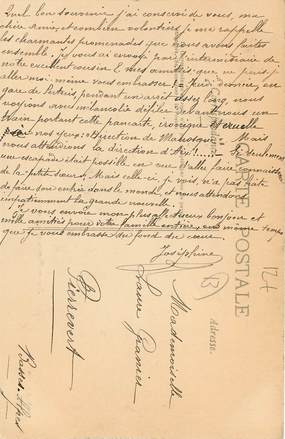 Quel bon souvenir j'ai conservé de vous, ma
chère amie, et combien volontiers je me rappelle
les charmantes promenades que nous avons faites
ensemble. Je vous ai envoyé par l'intermédiaire de
notre excellent cousin E mes amitiés, que ne puis-je
aller moi-même vous embrasser. Jeudi dernier, en
gare de Pertuis, pendant un arrêt assez long, nous
voyions avec mélancolie défiler devant nous un
train portant cette pancarte, ironique et cruelle
pour nos yeux: Direction de Manosque. Mais
nous attendions la direction d'Aix!... Si seulement
une escapade était possible en vue d'aller faire connaissance
de la petite sœur. Mais celle-ci je vois, n'a pas hâte
de faire son entrée dans le monde, et nous attendons
impatiemment la grande nouvelle.
Je vous envoie mon plus affectueux bonjour et
mille amitiés pour votre famille entière, en même temps
que je vous embrasse du fond du cœur.
Joséphine
CARTE POSTALE
Adresse.
Mademoiselle
Laure
Pierrevert
Basses-Alpes
(B)
12+